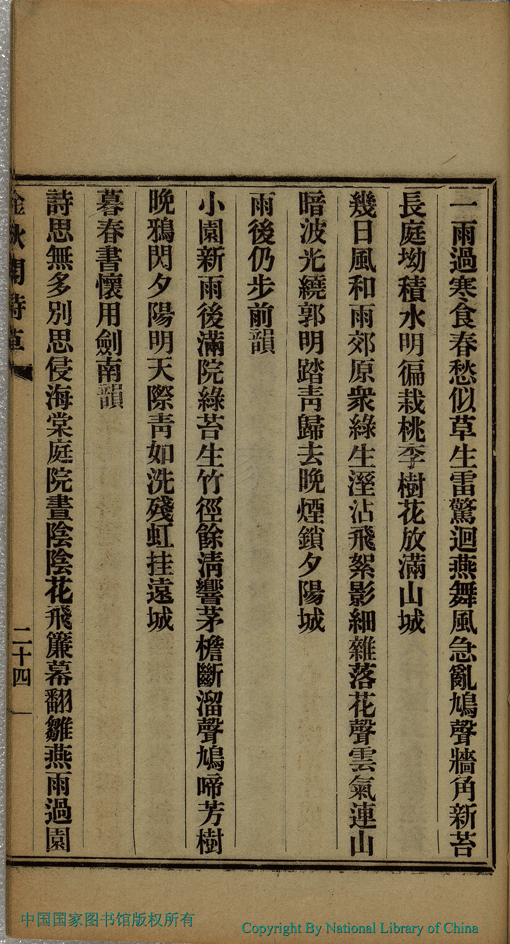 一雨過寒食春愁似草生雷驚迴燕舞風急亂鳩聲牆角新苔
長庭坳積水明徧栽桃李樹花放滿山城
幾日風和雨郊原衆綠生溼沾飛絮影細雜落花聲雲氣連山
暗波光繞郭明踏靑歸去晚煙鎖夕陽城
雨後仍步前韻
小園新雨後滿院綠苔生竹徑餘淸響茅檐斷溜聲鳩啼芳樹
晚鴉閃夕陽明天際靑如洗殘虹挂遠城
暮春書懷用劍南韻
詩思無多別思侵海棠庭院晝陰陰花飛簾幕翻雛燕雨過園
二十四
中国国家图书馆版权所有
Copyright By National Library of China